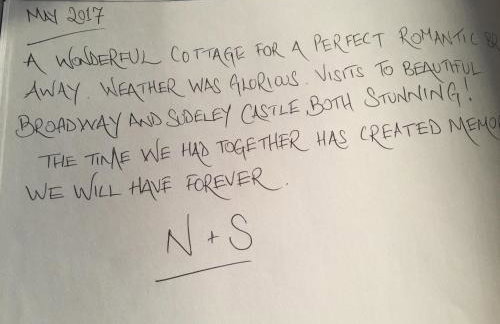 MAY 2017
A WONDERFUL COTTAGE FOR A PERFECT ROMANTIC
AWAY. WEATHER WAS GLORIOUS. VISITS TO BEAUTIFUL
BROADWAY AND SUDELEY CASTLE BOTH STUNNING!
THE TIME WE HAD TOGETHER HAS CREATED
WE WILL HAVE FOREVER.
N + S